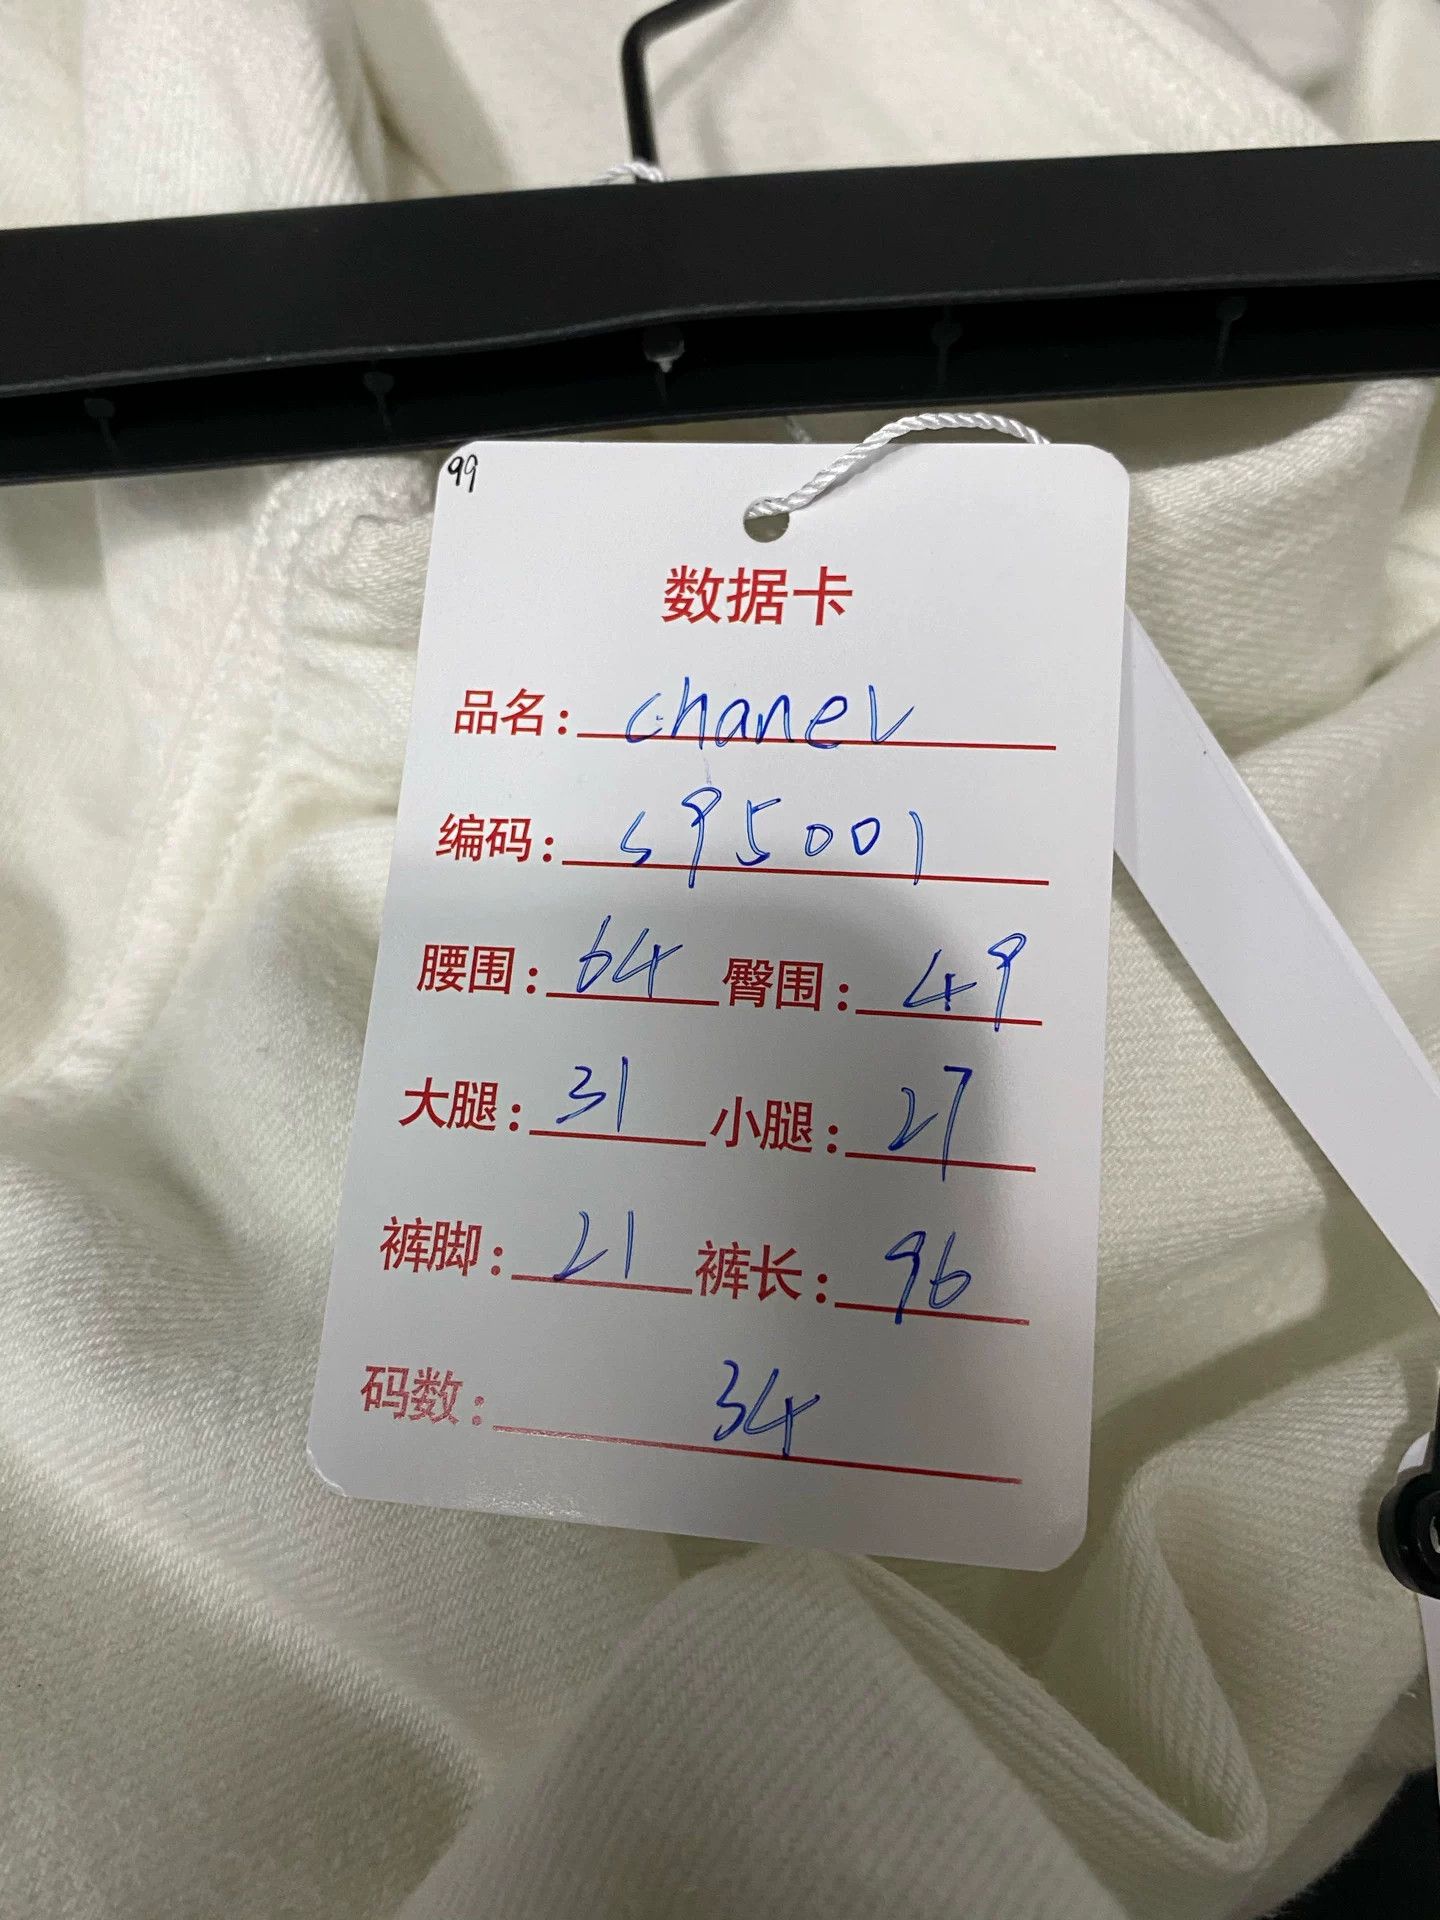 99
数据卡
品名: chanel
编码: s95001
腰围: 64 臀围: 49
大腿: 31 小腿: 27
裤脚: 21 裤长: 96
码数: 34